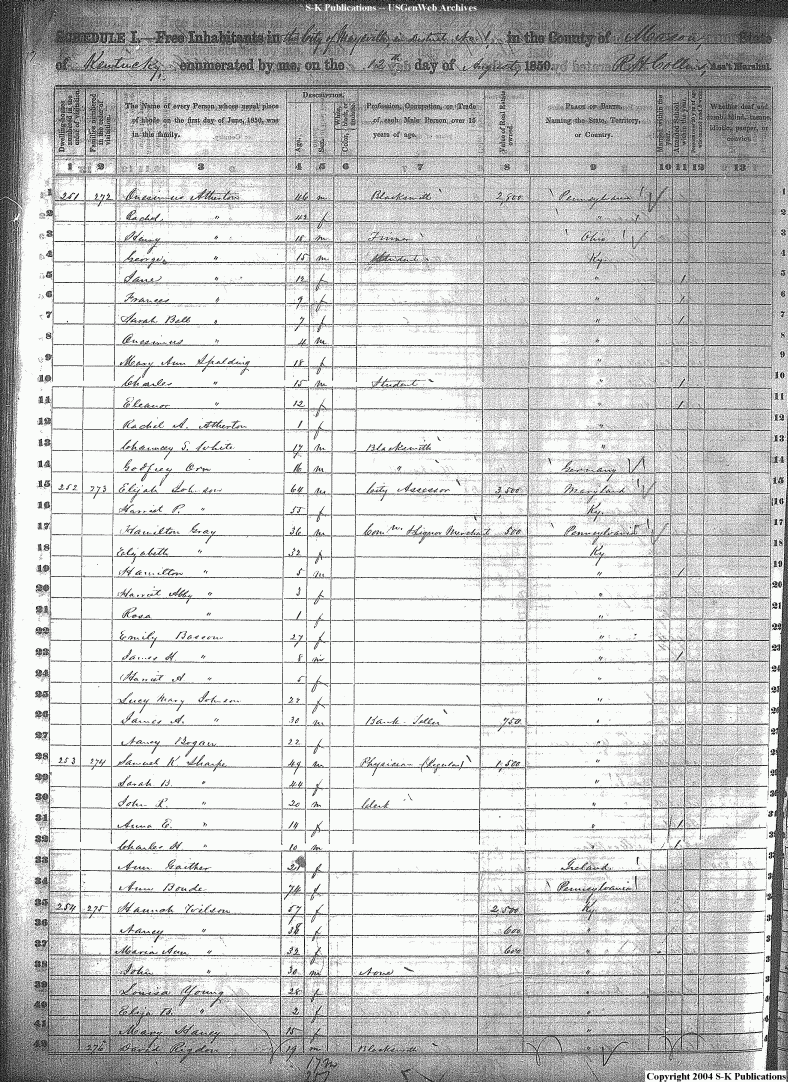 S-K Publications -- USGenWeb Archives
SCHEDULE I.—Free Inhabitants in the City of Maysville, in District No. 1, in the County of Mason, State
of Kentucky, enumerated by me, on the 12th day of August, 1850. R. H. Collins, Ass't Marshal.
Dwelling-houses numbered in the order of visitation.
Families numbered in the order of visitation.
The Name of every Person whose usual place of abode on the first day of June, 1850, was in this family.
Description.
Age.
Sex.
Profession, Occupation, or Trade of each Male Person over 15 years of age.
Value of Real Estate owned.
Place of Birth, Naming the State, Territory, or Country.
Whether deaf and dumb, blind, insane, idiotic, pauper, or convict.
1 2 3 4 5 6 7 8 9 10 11 12 13
1 251 272 Onesimus Atherton 46 m Blacksmith 2,800 Pennsylvania 1
2 Rachel " 42 f " 2
3 Henry " 18 m Ohio 3
4 George " 15 m Student Ky. 4
5 Jane " 12 f " 1 5
6 Frances " 9 f " 1 6
7 Sarah Bell " 7 f " 1 7
8 Onesimus " 4 m " 8
9 Mary Ann Spalding 18 f " 9
10 Charles " 15 m Student " 1 10
11 Eleanor " 12 f " 1 11
12 Rachel A. Atherton 1 f " 12
13 Chauncey S. White 17 m Blacksmith " 13
14 Godfrey Orn 16 m " Germany 14
15 252 273 Elijah Johnson 64 m City Assessor 3,500 Maryland 15
16 Harriet P. " 55 f Ky. 16
17 Hamilton Gray 36 m Comn. & Liquor Merchant 500 Pennsylvania 17
18 Elizabeth " 32 f Ky 18
19 Hamilton " 5 m " 1 19
20 Harriet Abby " 3 f " 20
21 Rosa " 1 f " 21
22 Emily 27 f " 22
23 James H. " 8 m " 1 23
24 Harriet A. " 5 f " 24
25 Lucy Mary Johnson 22 f " 25
26 James A. " 30 m Bank Teller 750 " 26
27 Nancy Bogan 22 f " 27
28 253 274 Samuel K. Sharpe 49 m Physician (Regular) 1,500 " 28
29 Sarah B. " 44 f " 29
30 John R. " 20 m Clerk " 30
31 Anna E. " 14 f " 1 31
32 Charles H. " 10 m " 1 32
33 Ann Gaither f Ireland 33
34 Ann Boude 74 f Pennsylvania 34
35 254 275 Hannah Wilson 57 f 2,500 Ky. 35
36 Nancy " 38 f 600 " 36
37 Maria Ann " 32 f 600 " 37
38 John " 30 m None " 38
39 Louisa Young 28 f " 39
40 Eliza B. " 2 f " 40
41 Mary Haney 15 f " 41
42 276 David Rigdon 19 m Blacksmith " 42
Copyright 2004 S-K Publications